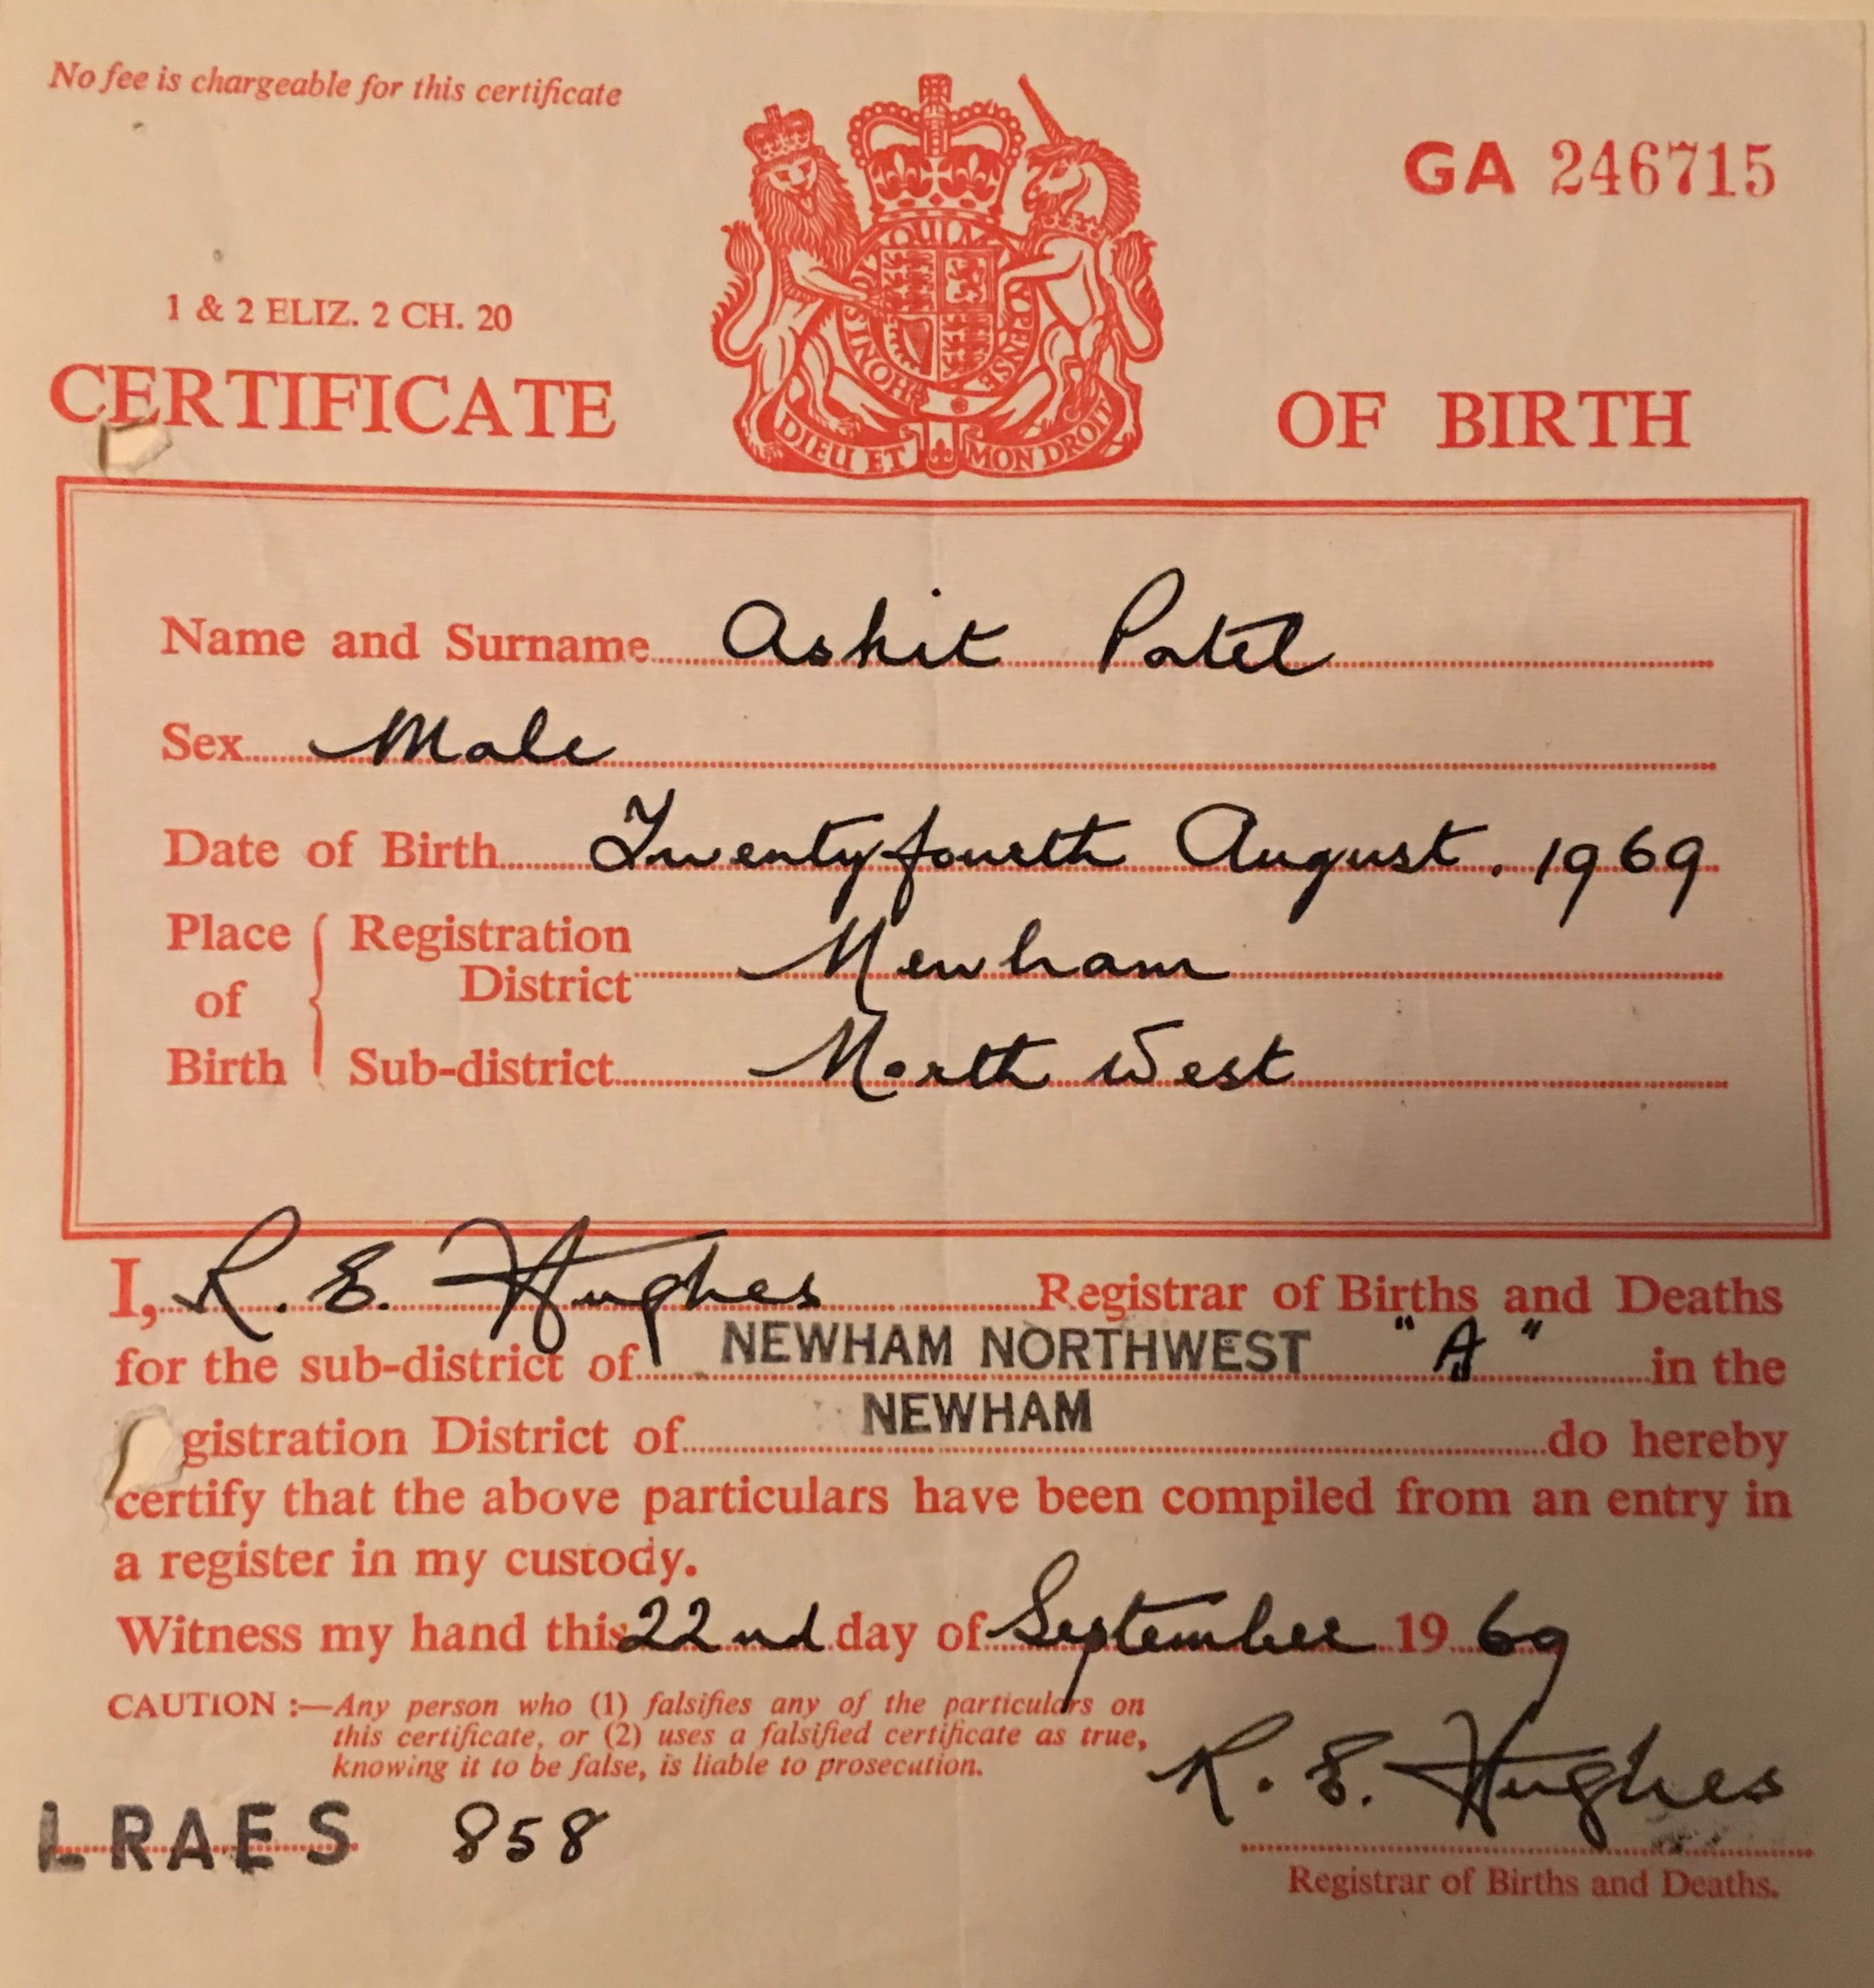 No fee is chargeable for this certificate
GA 246715
1 & 2 ELIZ. 2 CH. 20
HONI SOIT QUI MAL Y PENSE
DIEU ET MON DROIT
CERTIFICATE OF BIRTH
Name and Surname Ashit Patel
Sex Male
Date of Birth Twentyfourth August. 1969
Place of Birth
Registration District Newham
Sub-district North West
I, R. E. Hughes Registrar of Births and Deaths
for the sub-district of NEWHAM NORTHWEST "A" in the
gistration District of NEWHAM do hereby
certify that the above particulars have been compiled from an entry in
a register in my custody.
Witness my hand this 22nd day of September 1969
CAUTION :—Any person who (1) falsifies any of the particulars on
this certificate, or (2) uses a falsified certificate as true,
knowing it to be false, is liable to prosecution.
R. E. Hughes
LRAES 858
Registrar of Births and Deaths.